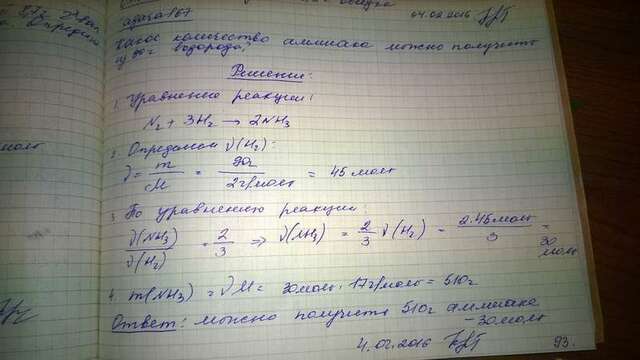 04.02.2016
Какое количество аммиака можно получить
из 90г водорода?
Решение:
1. Уравнение реакции:
N₂ + 3H₂ → 2NH₃
2. Определяем ν(H₂):
ν = m/M = 90г/2г/моль = 45 моль
3. По уравнению реакции:
ν(NH₃)/ν(H₂) = 2/3 ⇒ ν(NH₃) = 2/3 ν(H₂) = 2·45моль/3 = 30 моль
4. m(NH₃) = νM = 30моль · 17г/моль = 510г
Ответ: можно получить 510г аммиака
- 30моль
4.02.2016
93.